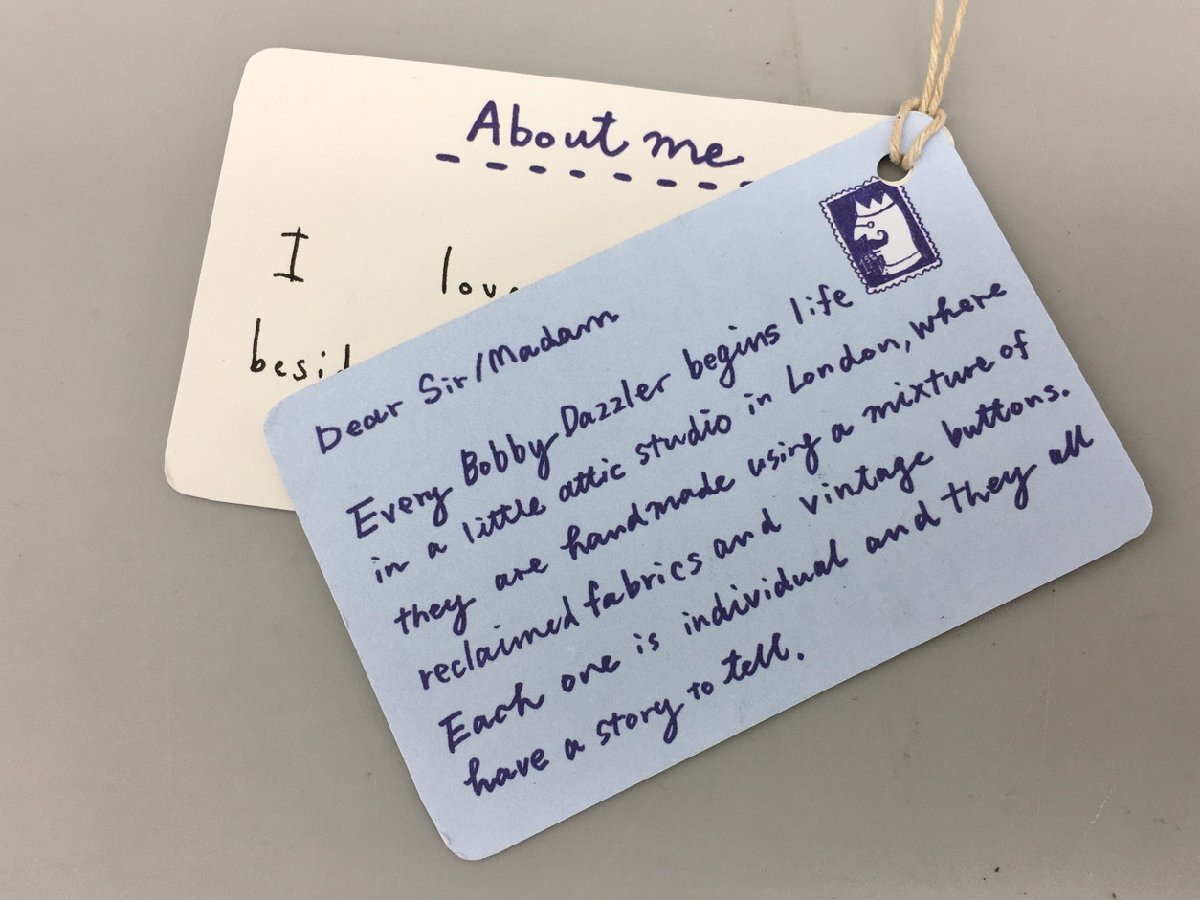 About me
I love
Dear Sir/Madam
Every Bobby Dazzler begins life
in a little attic studio in London, where
they are handmade using a mixture of
reclaimed fabrics and vintage buttons.
Each one is individual and they all
have a story to tell.